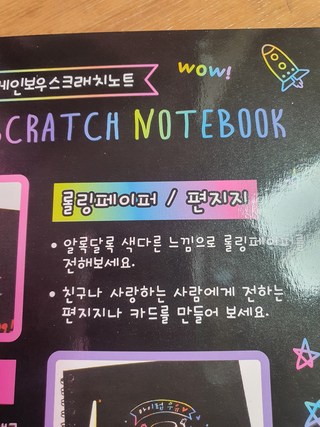 레인보우스크래치노트
wow!
SCRATCH NOTEBOOK
롤링페이퍼 / 편지지
• 알록달록 색다른 느낌으로 롤링페이퍼를
전해보세요.
• 친구나 사랑하는 사람에게 전하는
편지지나 카드를 만들어 보세요.